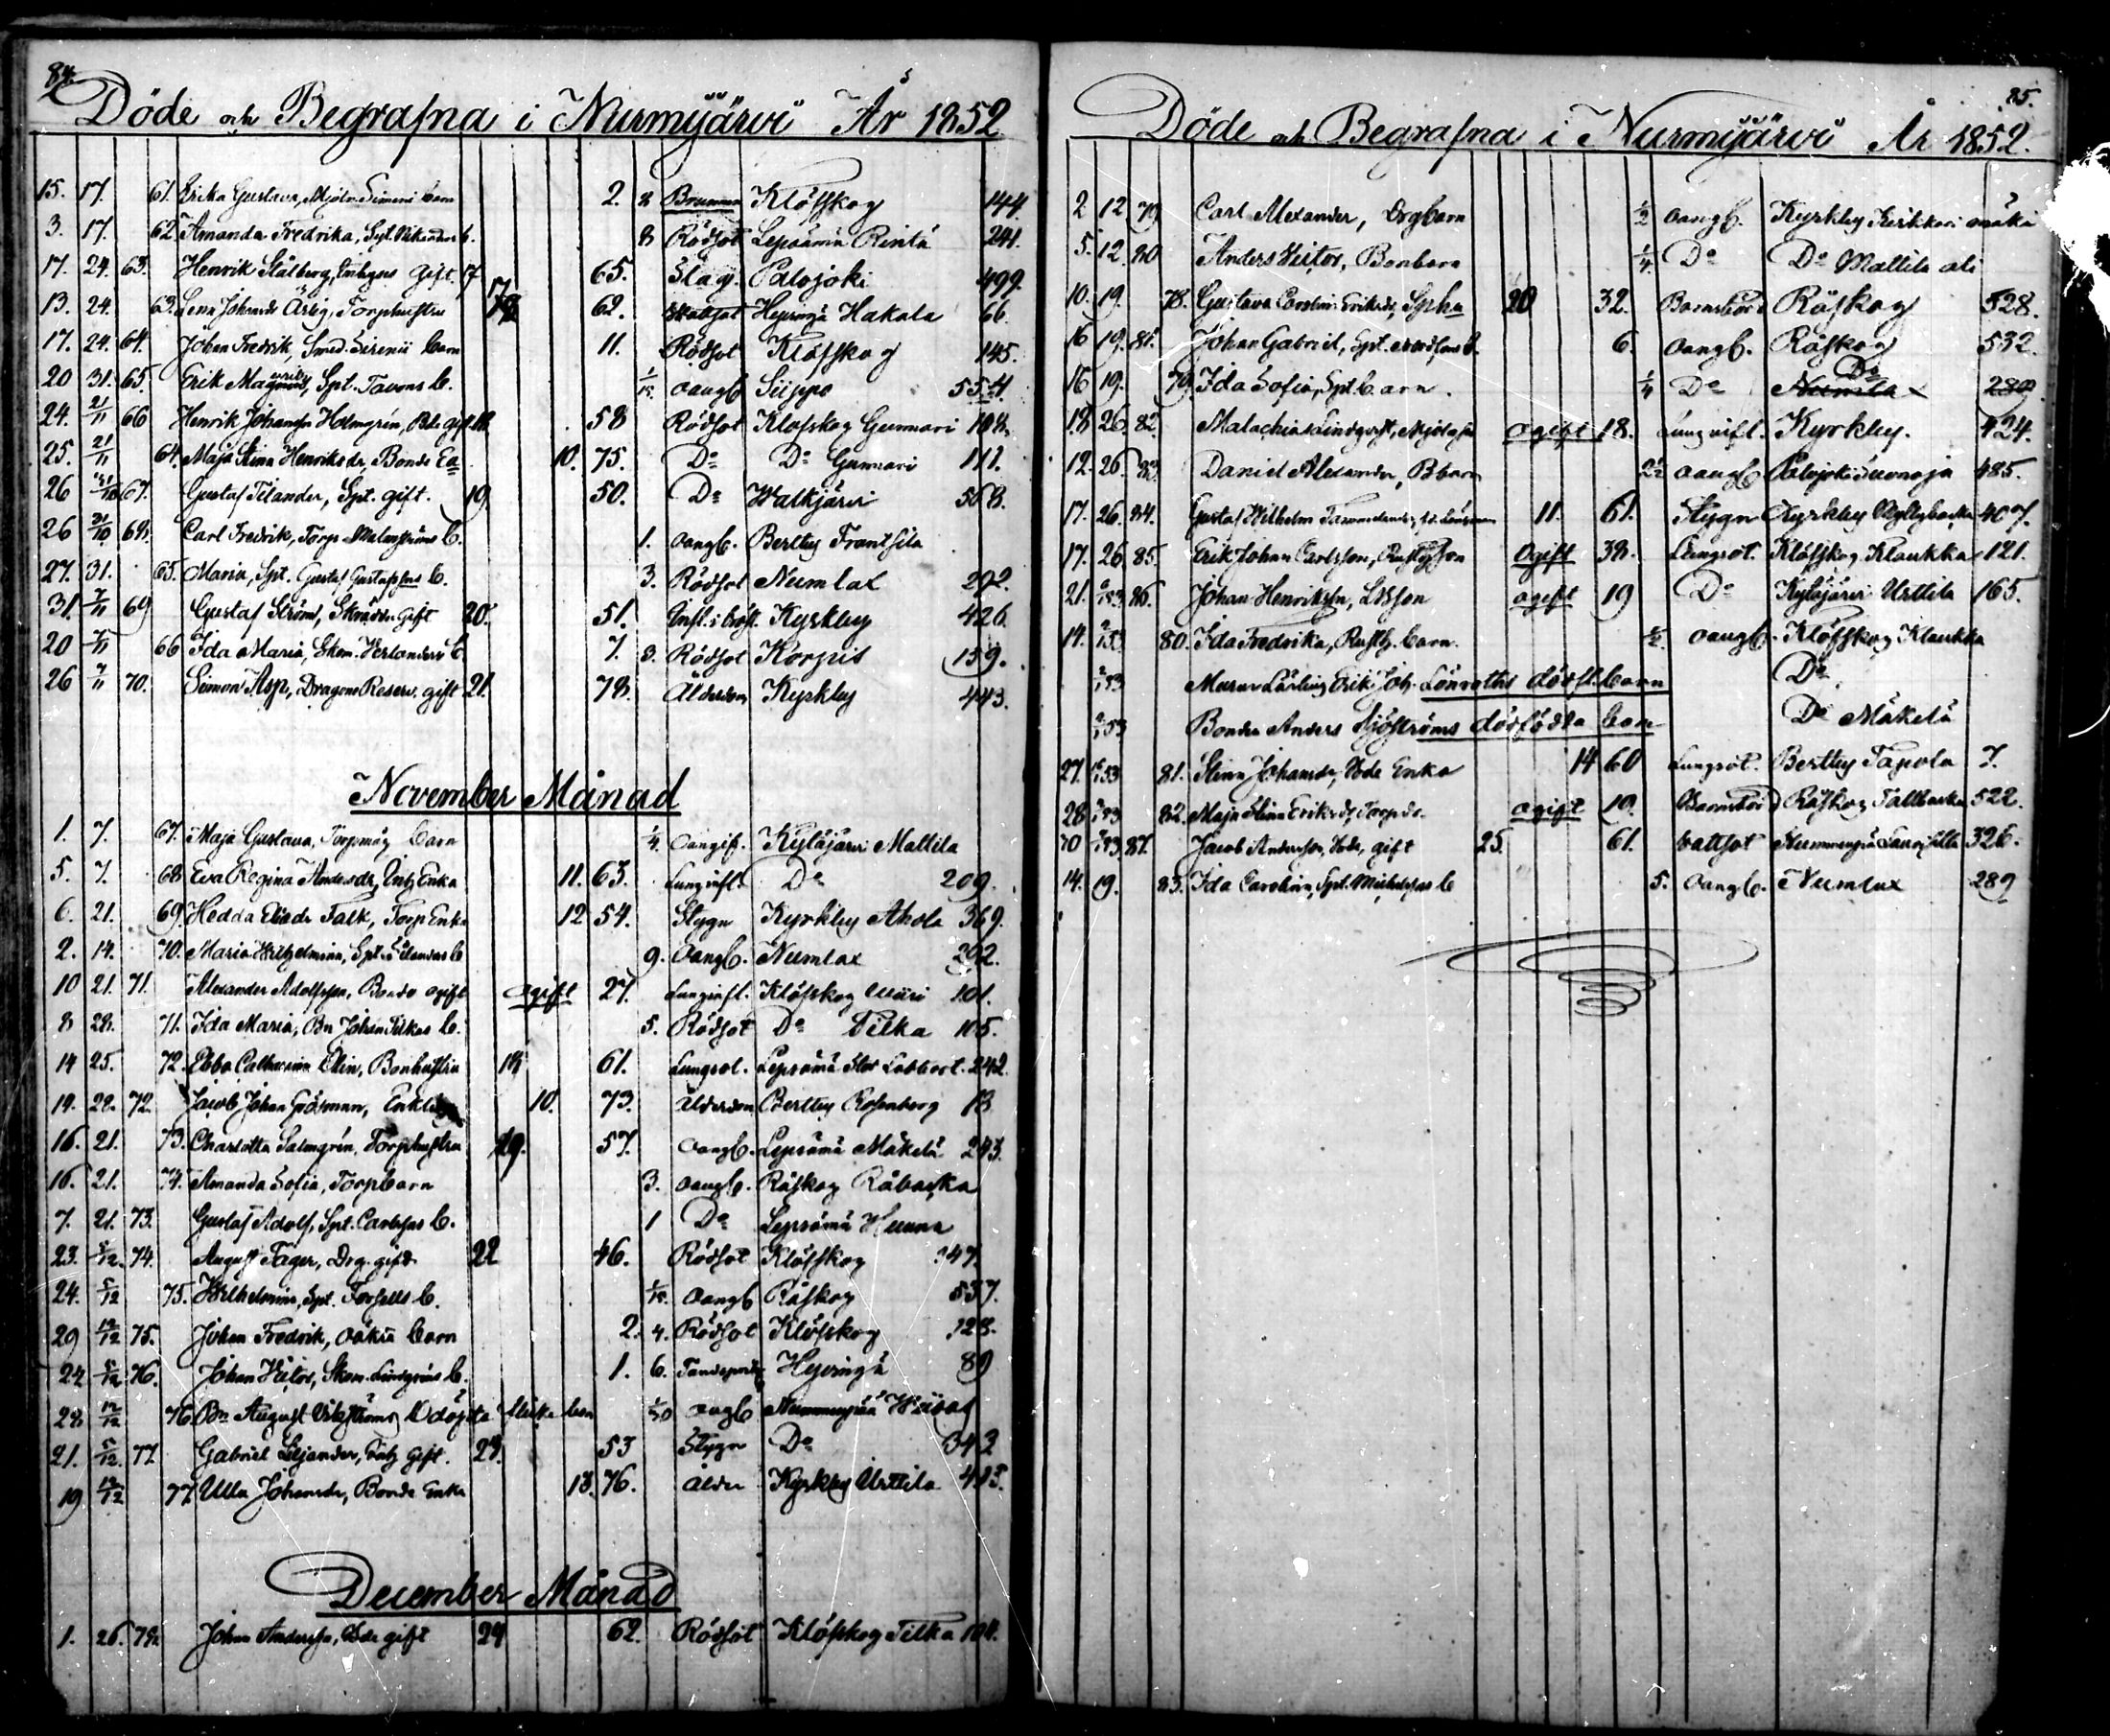 84.
Döde och Begrafna i Nurmijärvi År 1852
15. 17. 61. Erika Gustava, Mjöln. Simeni barn 2. 8 Klöfskog 144.
3. 17. 62. Amanda Fredrika, Spt. b. 8 Rödsot Lepsämä Rintä 241.
17. 24. 63. Henrik Stålberg, gift. 17 65. Slag. Palojoki 499.
13. 24. 63. Lena Johansdr Ärlig, Torphustru 17 62. Hyvingä Hakala 66.
17. 24. 64. Johan Fredrik, Smed. Sirenii barn 11. Rödsot Klöfskog 145.
20 31. 65. Erik Spt. Tavons b. oangb Siippo 554.
24. 21/11 66 Henrik Johansson Holmgrén, gift 18 58 Rödsot Klöfskog Gunnari 108.
25. 21/11 64. Maja Stina Henriksdr, Bonde Ea 10. 75. Do Do Gunnari 111.
26 67. Gustaf Tilander, Spt. gift. 19 50. Do Walkjärvi 568.
26 31/10 68. Carl Fredrik, Torp. Malmströms b. 1. oangb. Bertby Frantsila
27. 31. 65. Maria, Spt. Gustaf Gustafssons b. 3. Rödsot Numlax 292.
31. 7/11 69 Gustaf Ström, Skräddr. Gift 20. 51. Infl. i bröst. Kyrkby 426.
20 7/11 66 Ida Maria, Skom. Herlanders b. 7. 8. Rödsot Korpis 159.
26 7/11 70. Simon Asp, Dragon Reserv. gift 21. 78. Ålderdom Kyrkby 443.
November Månad
1. 7. 67. Maja Gustava, Torpmåg barn 1/4. oangif. Kyläjärvi Mattila
5. 7. 68 Eva Regina Andersdr, Inh. Enka 11. 63. Lunginfl. Do 209.
6. 21. 69. Hedda Eliædr Falk, Torp Enka 12 54. Stygn Kyrkby Ahola 369.
2. 14. 70. Maria Wilhelmina, Spt. b 9. oangb. Numlax 292.
10 21. 71. Alexander Adolfsson, Bonde ogift ogift 27. Lunginfl. Klöfskog 101.
8 28. 71. Ida Maria, Bn Johan Tilkas b. 5. Rödsot Do Tilka 105.
14 25. 72. Ebba Catharina Elin, Bonhustru 18 61. Lungsot. Lepsämä 242.
14. 28. 72. Jacob Johan Enkling 10. 73. Ålderdom Bertby Rosenberg 13
16. 21. 73. Charlotta Salmgrén, Torphustru 19. 57. oangb. Lepsämä Mäkelä 243.
16. 21. 74. Amanda Sofia, Torpbarn 3. oangb. Råskog Råbacka
7. 21. 73. Gustaf Adolf, Spt. Carlssons b. 1 Do Lepsämä
23. 5/12. 74. August Fager, Drg. gift 22 46. Rödsot Klöfskog 147.
24. 5/12 75. Wilhelmina, Spt. Forsells b. oangb Råskog 537.
29 12/12 75. Johan Fredrik, oäkta barn 2. 4. Rödsot Klöfskog 128.
24 5/12 76. Johan Victor, Skom. Lindgréns b. 1. 6. Hyvingä 89
28 12/12 76. Bn August odöpta flicka barn oangb Nummenpää
21. 5/12. 77. Gabriel Liljander, Inh. gift. 23. 53 Stygn Do 342
19 12/12 77. Ulla Johansdr, Bonde Enka 13. 76. ålder Kyrkby Urttila 413.
December Månad
1. 26. 78. Johan Andersson, Bde gift 24 62. Rödsot Klöfskog Tilka 104.
85.
Döde och Begrafna i Nurmijärvi År 1852.
2 12 79 Carl Alexander, Drgbarn 1/2 oangb. Kyrkby mäki
5. 12. 80 Anders Victor, Bonbarn 1/4. Do Do Mattila ali
10. 19. 78. Gustava Carolina Eriksdr, Spha 20 32. Barnsbörd Råskog 528.
16 19. 81. Johan Gabriel, Spt. b. 6. oangb. Råskog 532.
16 19. 79. Ida Sofia, Spt. barn. 1/4 Do Do 289
18 26. 82. Malachias Lindqvist, ogift 18. Lunginfl. Kyrkby. 424.
12. 26. 83. Daniel Alexander, Bbarn 2 1/2 oangb Palojoki 485.
17. 26. 84. Gustaf Wilhelm 11. 61. Stygn Kyrkby 407.
17. 26 85. Erik Johan Carlsson, Rusthson ogift 38. Lungsot. Klöfskog Klaukka 121.
21. 2/1 53. 86. Johan Henriksson, ogift 19 Do Kyläjärvi Urttila 165.
14. 2/1 53 80. Ida Fredrika, Rusth. barn. 1/2. oangb. Klöfskog Klaukka
2/1 53 Murar Lärling Erik Joh. Lönroths dödf. barn Do
2/1 53 Bonden Anders Sjöströms dödfödda barn Do Mäkelä
27. 53 81. Stina Johansdr, Bde Enka 14 60 Lungsot. Bertby Tapola 7.
28 53 82. Maja Stina Eriksdr, Torpdr. ogift 19. Råskog Tallbacka 522.
30 53 87. Jacob Andersson, Bde, gift 25. 61. Vattsot Nummenpää 326.
14. 19. 83. Ida Carolina, Spt. Michelssons b 5. oangb. Numlax 289